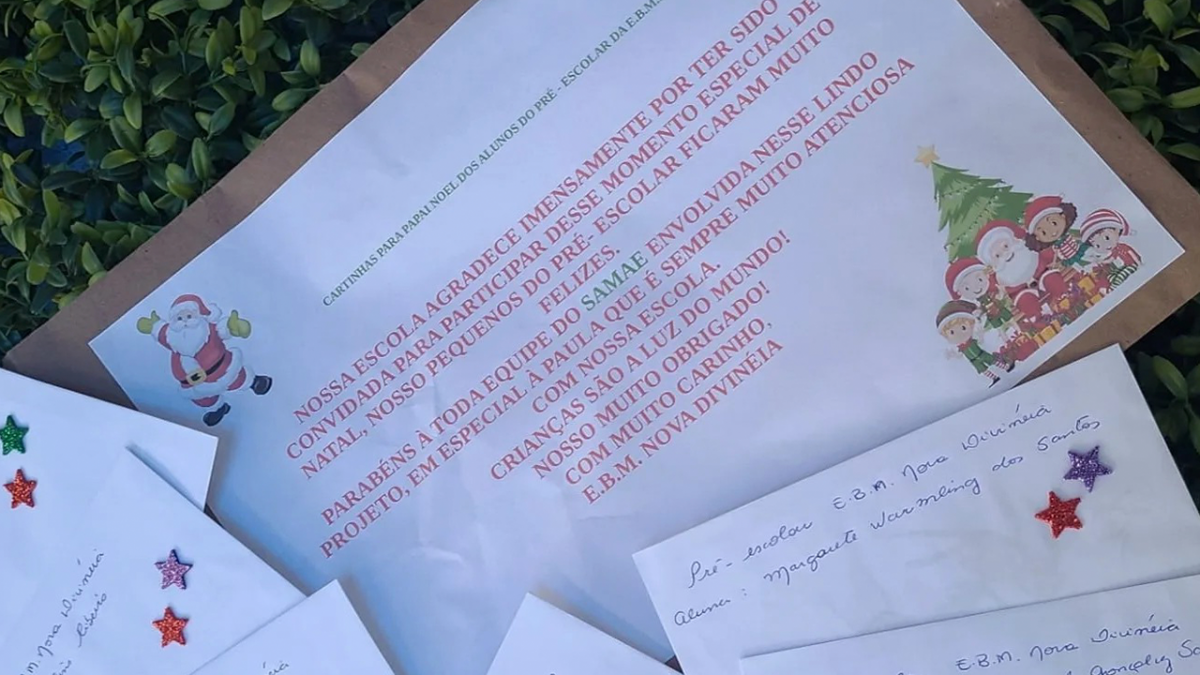 CARTINHAS PARA PAPAI NOEL DOS ALUNOS DO PRÉ - ESCOLAR DA E.B.M.
NOSSA ESCOLA AGRADECE IMENSAMENTE POR TER SIDO
CONVIDADA PARA PARTICIPAR DESSE MOMENTO ESPECIAL DE
NATAL, NOSSO PEQUENOS DO PRÉ- ESCOLAR FICARAM MUITO
FELIZES.
PARABÉNS À TODA EQUIPE DO SAMAE ENVOLVIDA NESSE LINDO
PROJETO, EM ESPECIAL A PAULA QUE É SEMPRE MUITO ATENCIOSA
COM NOSSA ESCOLA.
CRIANÇAS SÃO A LUZ DO MUNDO!
NOSSO MUITO OBRIGADO!
COM MUITO CARINHO,
E.B.M. NOVA DIVINÉIA
Pré-escolar E.B.M. Nova Divinéia
Aluna: Margarete Warmling dos Santos
E.B.M. Nova Divinéia
Gonçalez
.M. Nova Divinéia
Ribeiro